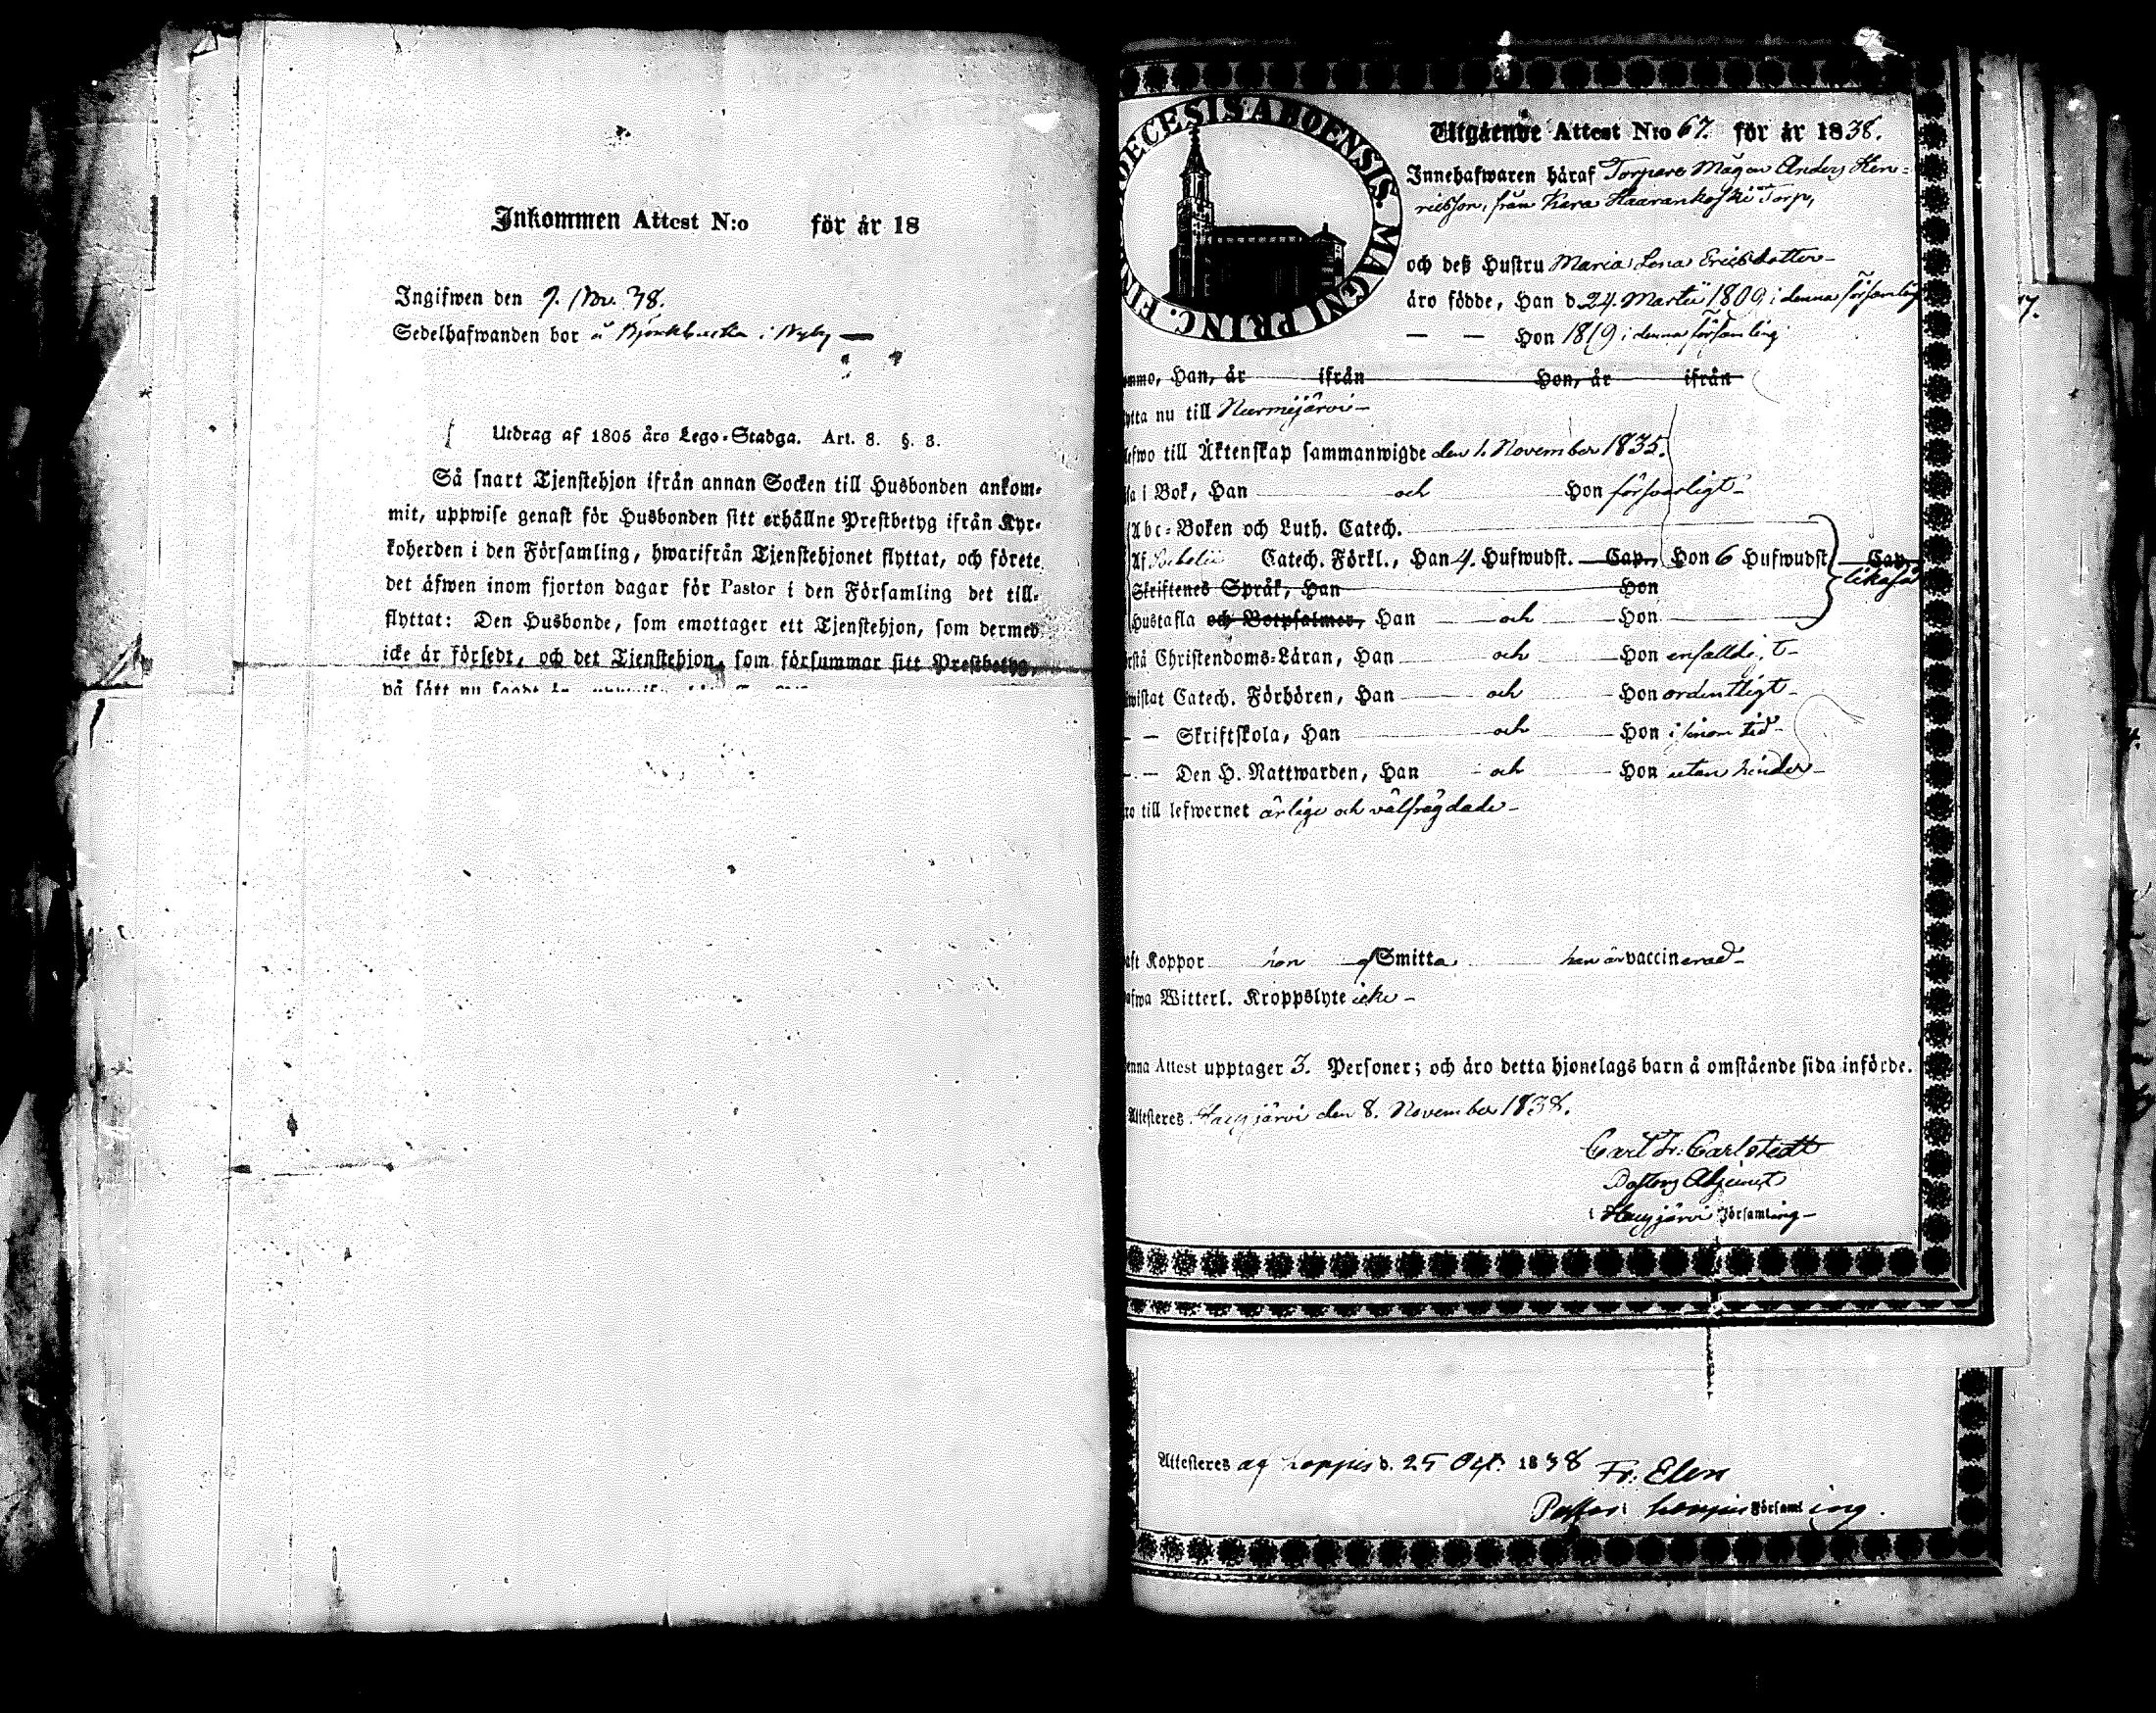 Inkommen Attest N:o för år 18
Ingifwen den 9. Nov. 38.
Sedelhafwanden bor å Björkbacka i Nyby
Utdrag af 1805 års Lego-Stadga. Art. 8. §. 3.
Så snart Tjenstehjon ifrån annan Socken till Husbonden ankom-
mit, uppwise genast för Husbonden sitt erhållne Prestbetyg ifrån Kyr-
koherden i den Församling, hwarifrån Tjenstehjonet flyttat, och förete
det äfwen inom fjorton dagar för Pastor i den Församling det till-
flyttat: Den Husbonde, som emottager ett Tjenstehjon, som dermed
icke är försedt, och det Tjenstehjon, som försummar sitt Prestbetyg,
på sätt nu sagdt är
DECESIS ABOENSIS. MAGNI PRINC. FIN
Utgående Attest N:o 67. för år 1838.
Innehafwaren häraf Torpare Mågen Anders Hen-
ricsson, från Kara Haarankoski Torp,
och deß Hustru Maria Lena Ericsdotter
äro födde, Han d. 24. Martii 1809 i denna församling
— — Hon 1819 i denna församling
ommo, Han, år ifrån Hon, år ifrån
ytta nu till Nurmijärvi
lefwo till Äktenskap sammanwigde den 1. November 1835.
sa i Bok, Han och Hon försvarligt
Abc-Boken och Luth. Catech.
Af Sebelii Catech. Förkl., Han 4. Hufwudst. Cap. Hon 6 Hufwudst. Cap.
likaså
Skriftenes Språk, Han Hon
Hustafla och Botpsalmer, Han och Hon
rstå Christendoms-Läran, Han och Hon enfalldigt
wistat Catech. Förhören, Han och Hon ordentligt
— — Skriftskola, Han och Hon i sinom tid
— — Den H. Nattwarden, Han och Hon utan hinder
ro till lefwernet ärlige och välfrägdade
aft Koppor hon Smitta han är vaccinerad
afwa Witterl. Kroppslyte icke
enna Attest upptager 3. Personer; och äro detta hjonelags barn å omstående sida införde.
Attesteres Hausjärvi den 8. November 1838.
Carl Fr. Carlstedt
Pastors Adjunct
i Hausjärvi Församling
Attesteres af Loppis d. 25 Oct. 1838
Fr. Elen
Pastor i Loppis Församling.